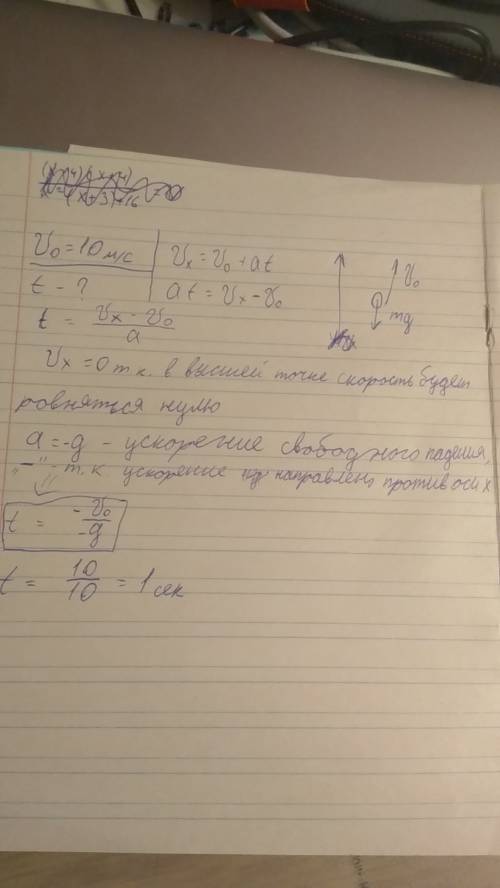 v₀ = 10 м/с
vₓ = v₀ + at
t - ?
at = vₓ - v₀
t = vₓ - v₀ / a
v₀
mg
vₓ = 0 т.к. в высшей точке скорость будет
ровняться нулю
a = -g - ускорение свободного падения,
"-" - т.к ускорение направлено против оси х
t = -v₀ / -g
t = 10 / 10 = 1 сек